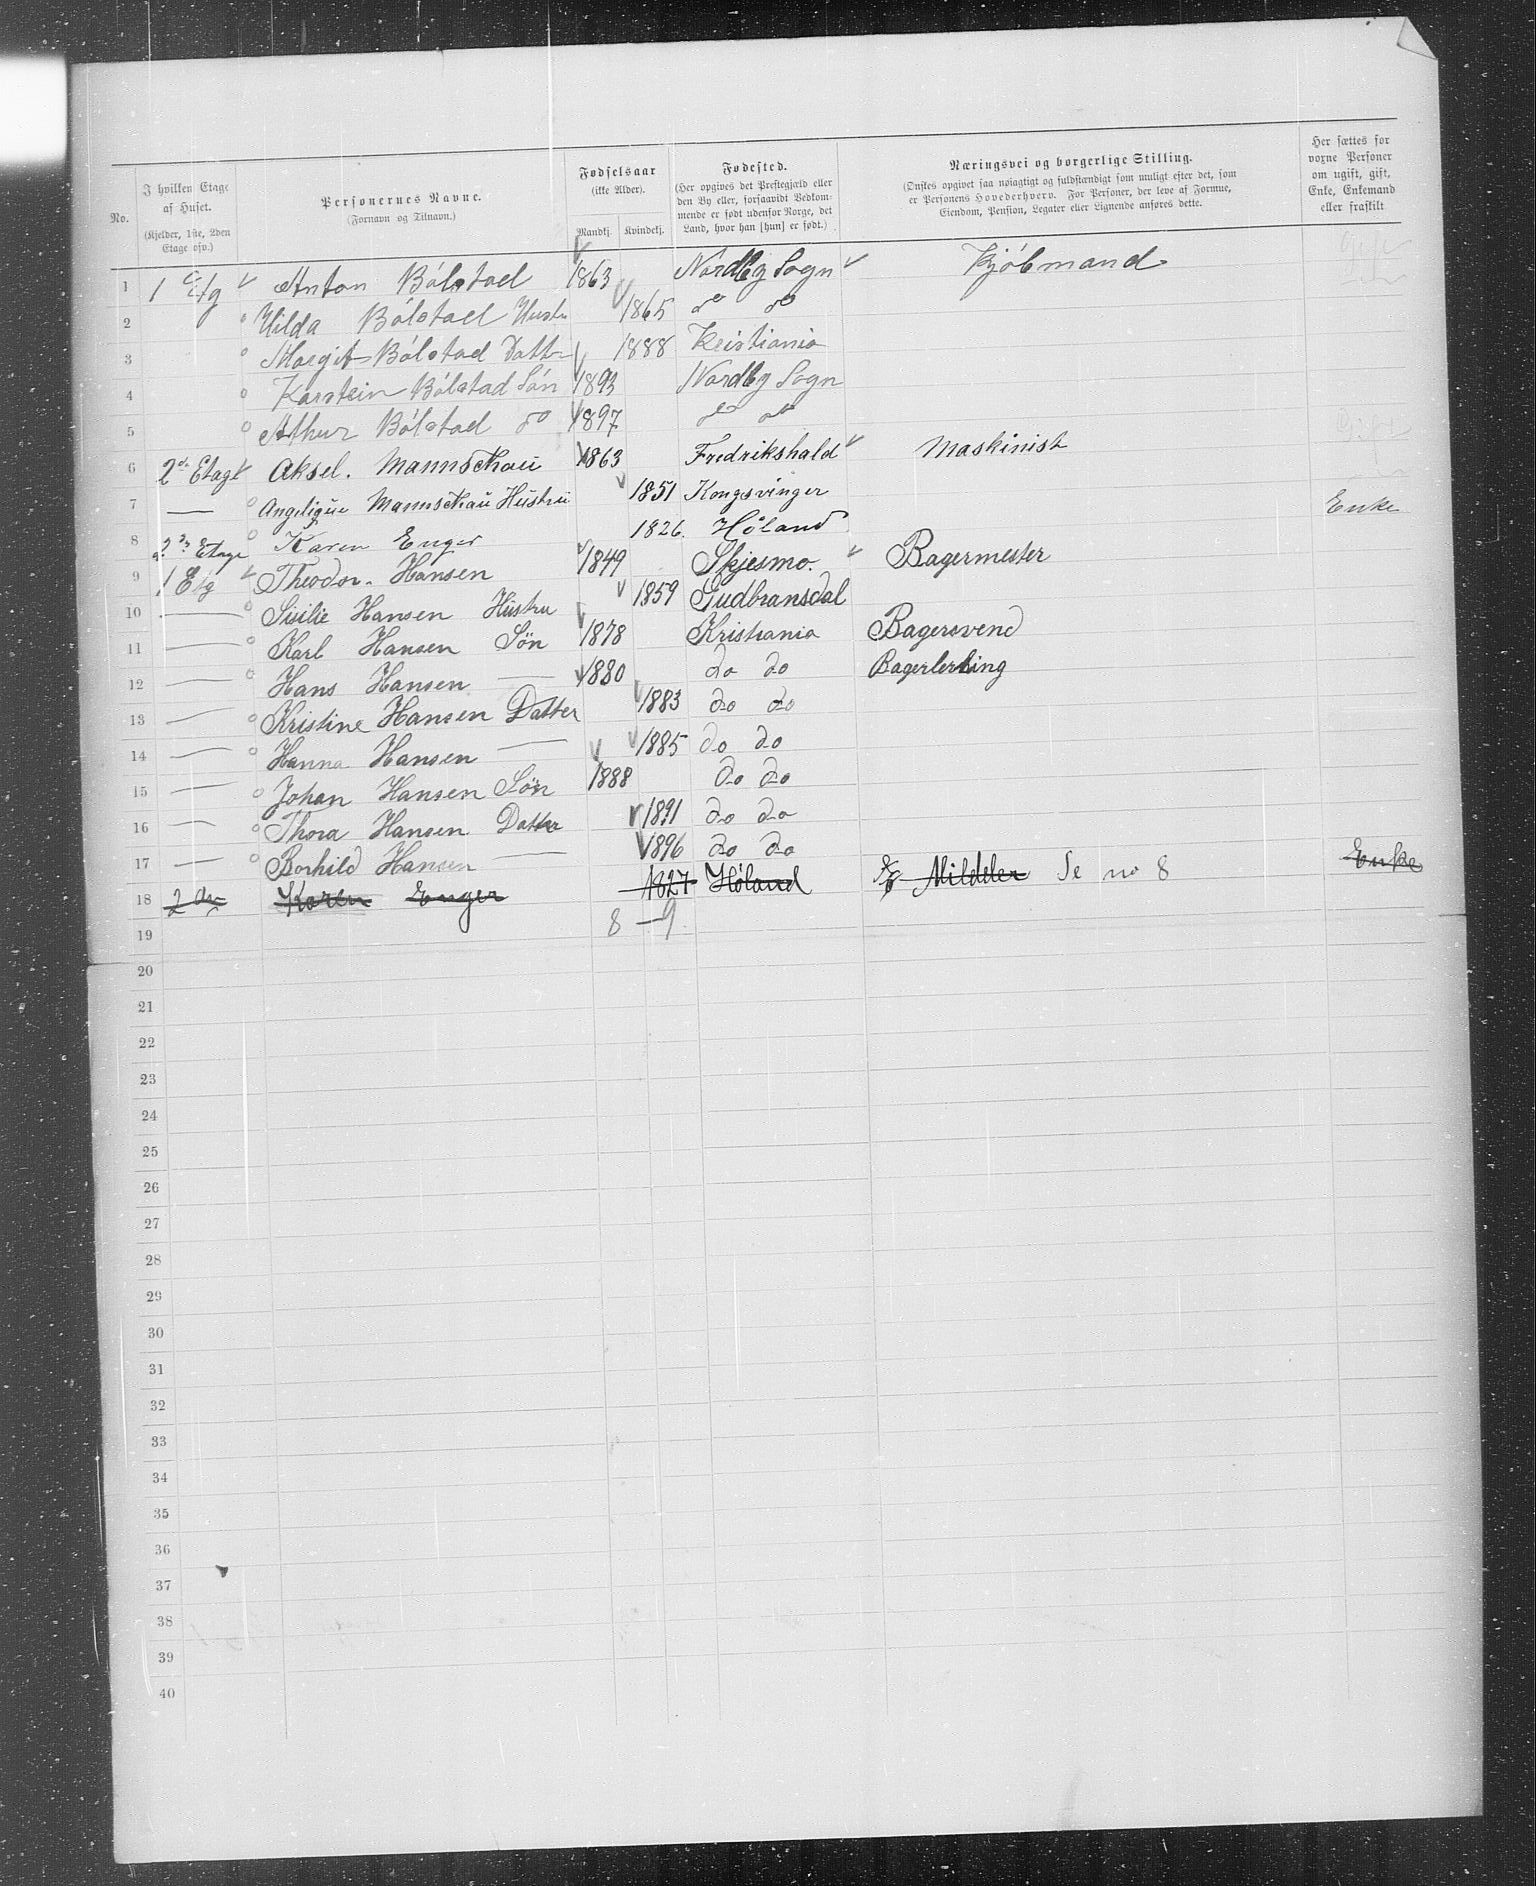 No. I hvilken Etage af Huset. (Kjelder, 1ste, 2den Etage osv.) Personernes Navne. (Fornavn og Tilnavn.) Fødselsaar (ikke Alder). Mandkj. Kvindekj. Fødested. (Her opgives det Prestegjæld eller den By eller, forsaavidt Vedkommende er født udenfor Norge, det Land, hvor han [hun] er født.) Næringsvei og borgerlige Stilling. (Ønskes opgivet saa nøiagtigt og fuldstændigt som muligt efter det, som er Personens Hovederhverv. For Personer, der leve af Formue, Eiendom, Pension, Legater eller Lignende anføres dette. Her sættes for voxne Personer om ugift, gift, Enke, Enkemand eller fraskilt
1 1 Etg Anton Bólstad 1863 Nordby Sogn Kjóbmand
2 Hilda Bólstad Hustr 1865 do do
3 Margit Bólstad Dattr 1888 Kristiania
4 Karstein Bólstad Són 1893 Nordby Sogn
5 Athur Bólstad do 1897 do do
6 2den Etage Aksel. Mannschau 1863 Fredrikshald Maskinist
7 — Angelique Mannschau Hustru 1851 Kongsvinger
8 2den Etage Karen Enger 1826. Höland Enke
9 1 Etg Theodor. Hansen 1849 Skjesmo. Bagermester
10 — Sisilie Hansen Hustru 1859 Gudbransdal
11 — Karl Hansen Søn 1878 Kristiania Bagersvend
12 — Hans Hansen — 1880 do do Bagerlerling
13 — Kristine Hansen Datter 1883 do do
14 — Hanna Hansen — 1885 do do
15 — Johan Hansen Søn 1888 do do
16 — Thora Hansen Datter 1891 do do
17 — Borhild Hansen — 1896 do do
18 2den Karen Enger 1827 Höland Se no 8 Enke
19 8 — 9
20
21
22
23
24
25
26
27
28
29
30
31
32
33
34
35
36
37
38
39
40